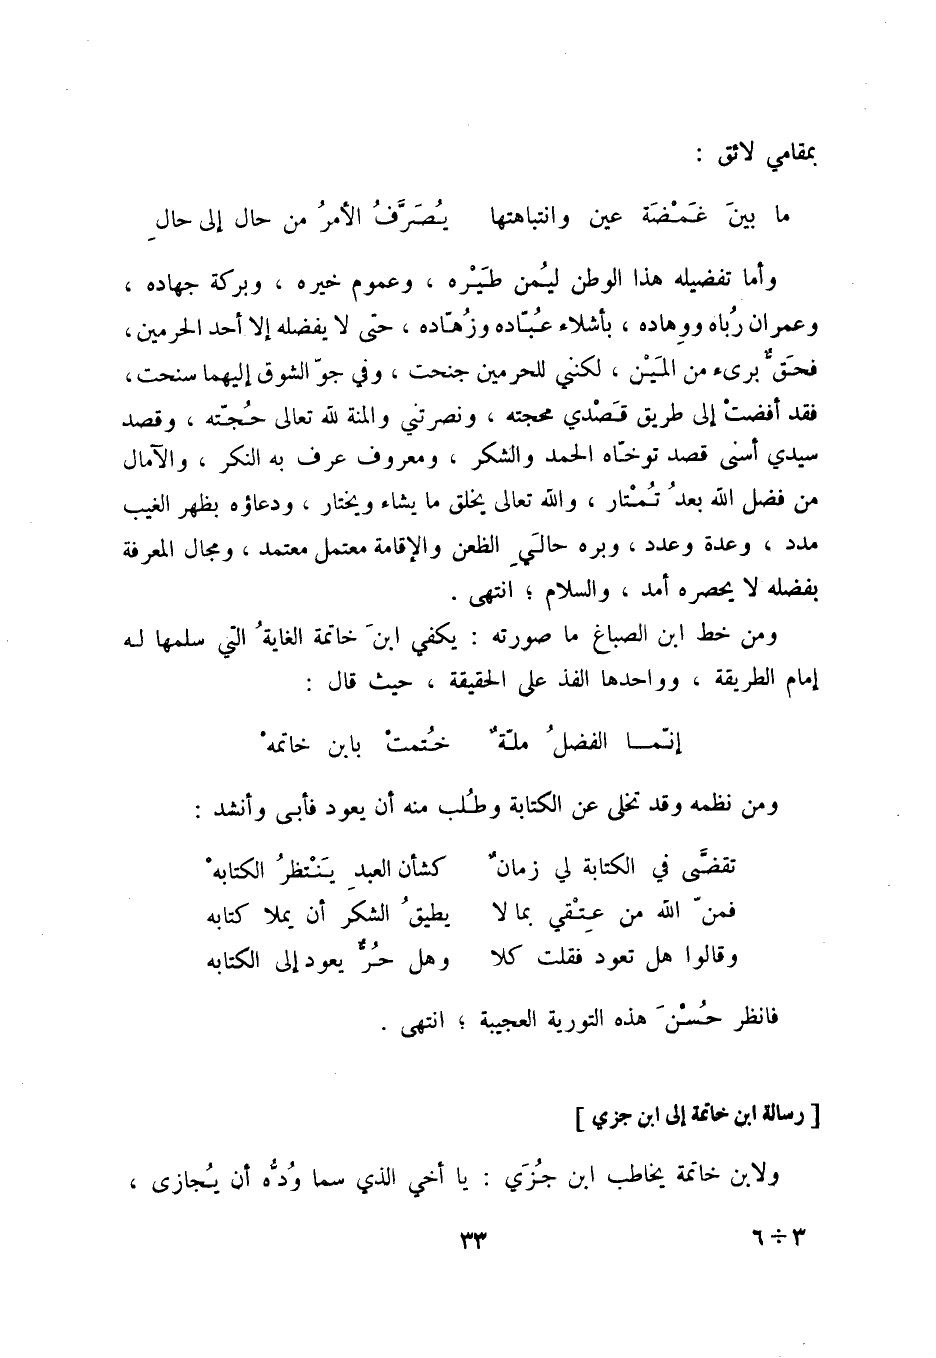 بمقامي لائق :
ما بينَ غَمْضَة عين وانتباهتها يُصَرَّفُ الأمرُ من حال إلى حالِ
وأما تفضيله هذا الوطن ليُمن طَيْره ، وعموم خيره ، وبركة جهاده ،
وعمران رُباه ووِهاده ، بأشلاء عُبّاده وزُهّاده ، حتى لا يفضله إلا أحد الحرمين ،
فحَقٌّ برىء من المَيْن ، لكنني للحرمين جنحت ، وفي جوّ الشوق إليهما سنحت ،
فقد أفضتْ إلى طريق قَصْدي محجته ، ونصرتني والمنة لله تعالى حُجّته ، وقصد
سيدي أسنى قصد توخّاه الحمد والشكر ، ومعروف عرف به النكر ، والآمال
من فضل الله بعدُ تُمْتار ، والله تعالى يخلق ما يشاء ويختار ، ودعاؤه بظهر الغيب
مدد ، وعدة وعدد ، وبره حالَيِ الظعن والإقامة معتمل معتمد ، ومجال المعرفة
بفضله لا يحصره أمد ، والسلام ؛ انتهى .
ومن خط ابن الصباغ ما صورته : يكفي ابنَ خاتمة الغايةُ التي سلمها له
إمام الطريقة ، وواحدها الفذ على الحقيقة ، حيث قال :
إنّما الفضلُ ملّةٌ خُتمتْ بابن خاتمهْ
ومن نظمه وقد تخلى عن الكتابة وطُلب منه أن يعود فأبى وأنشد :
تقضَّى في الكتابة لي زمانٌ كشأن العبدِ يَنْتظرُ الكتابهْ
فمنّ الله من عِتْقي بما لا يطيقُ الشكر أن يملا كتابه
وقالوا هل تعود فقلت كلا وهل حُرٌّ يعود إلى الكتابه
فانظر حُسْنَ هذه التورية العجيبة ؛ انتهى .
[ رسالة ابن خاتمة إلى ابن جزي ]
ولابن خاتمة يخاطب ابن جُزَي : يا أخي الذي سما وُدُّه أن يُجازى ،
٣ ÷ ٦
٣٣